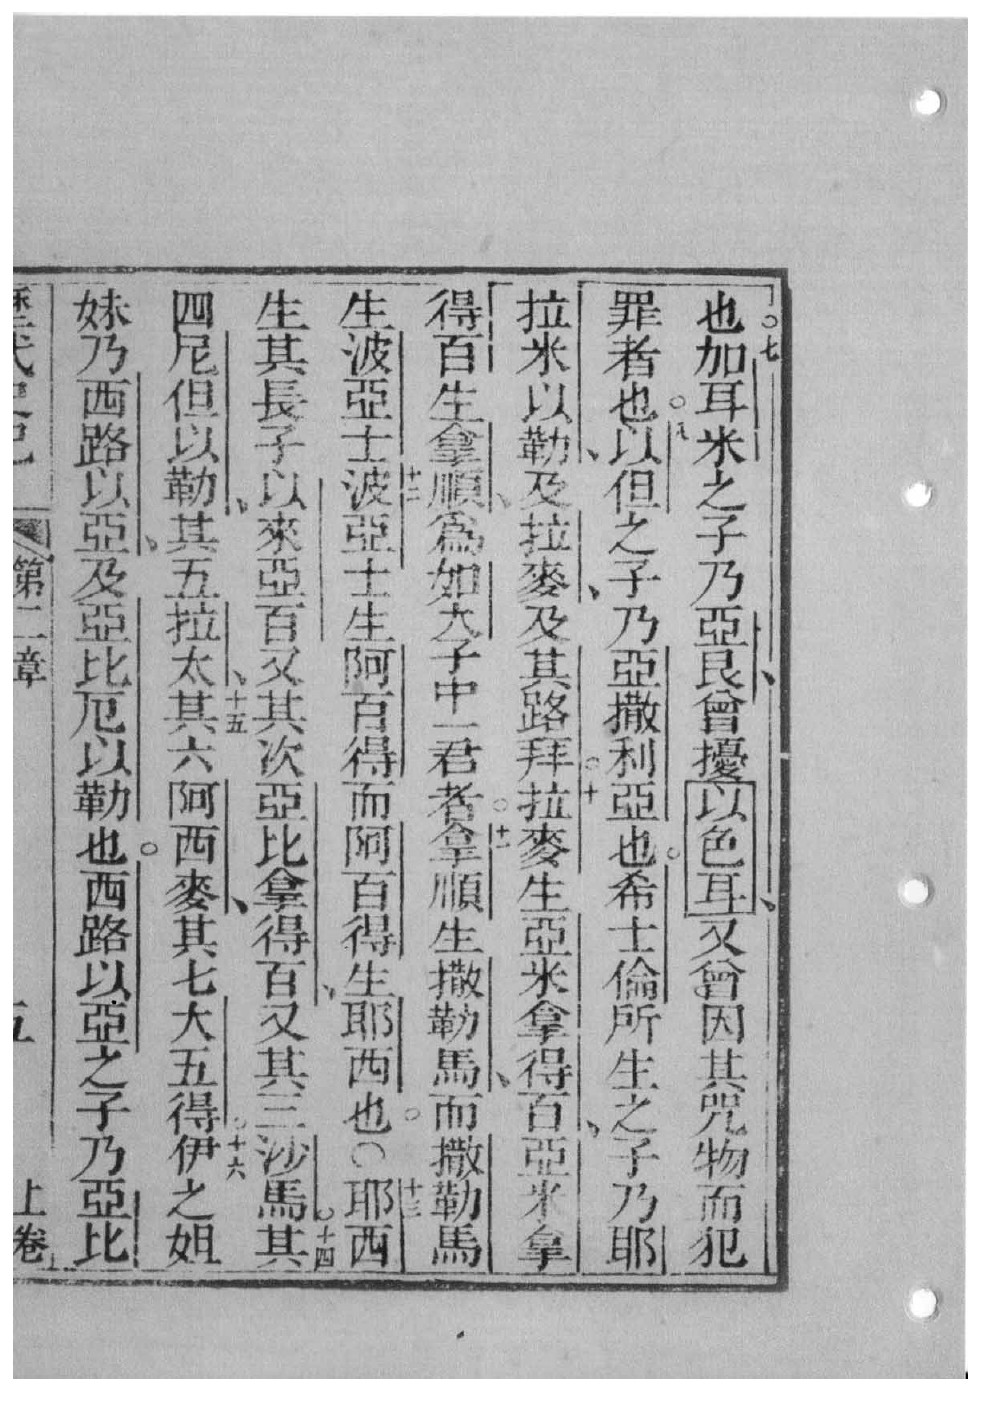 也〇七加耳米之子乃亞艮曾擾以色耳又曾因其咒物而犯
罪者也〇八以但之子乃亞撒利亞也〇希士倫所生之子乃耶
拉米以勒及拉麥及其路拜〇十拉麥生亞米拿得百亞米拿
得百生拿順爲如大子中一君者〇十一拿順生撒勒馬而撒勒馬
生波亞士十二波亞士生阿百得而阿百得生耶西也〇〇十三耶西
生其長子以來亞百又其次亞比拿得百又其三沙馬〇十四其
四尼但以勒其五拉太十五其六阿西麥其七大五得〇十六伊之姐
妹乃西路以亞及亞比厄以勒也〇西路以亞之子乃亞比
歷代史記 第二章 五 上卷